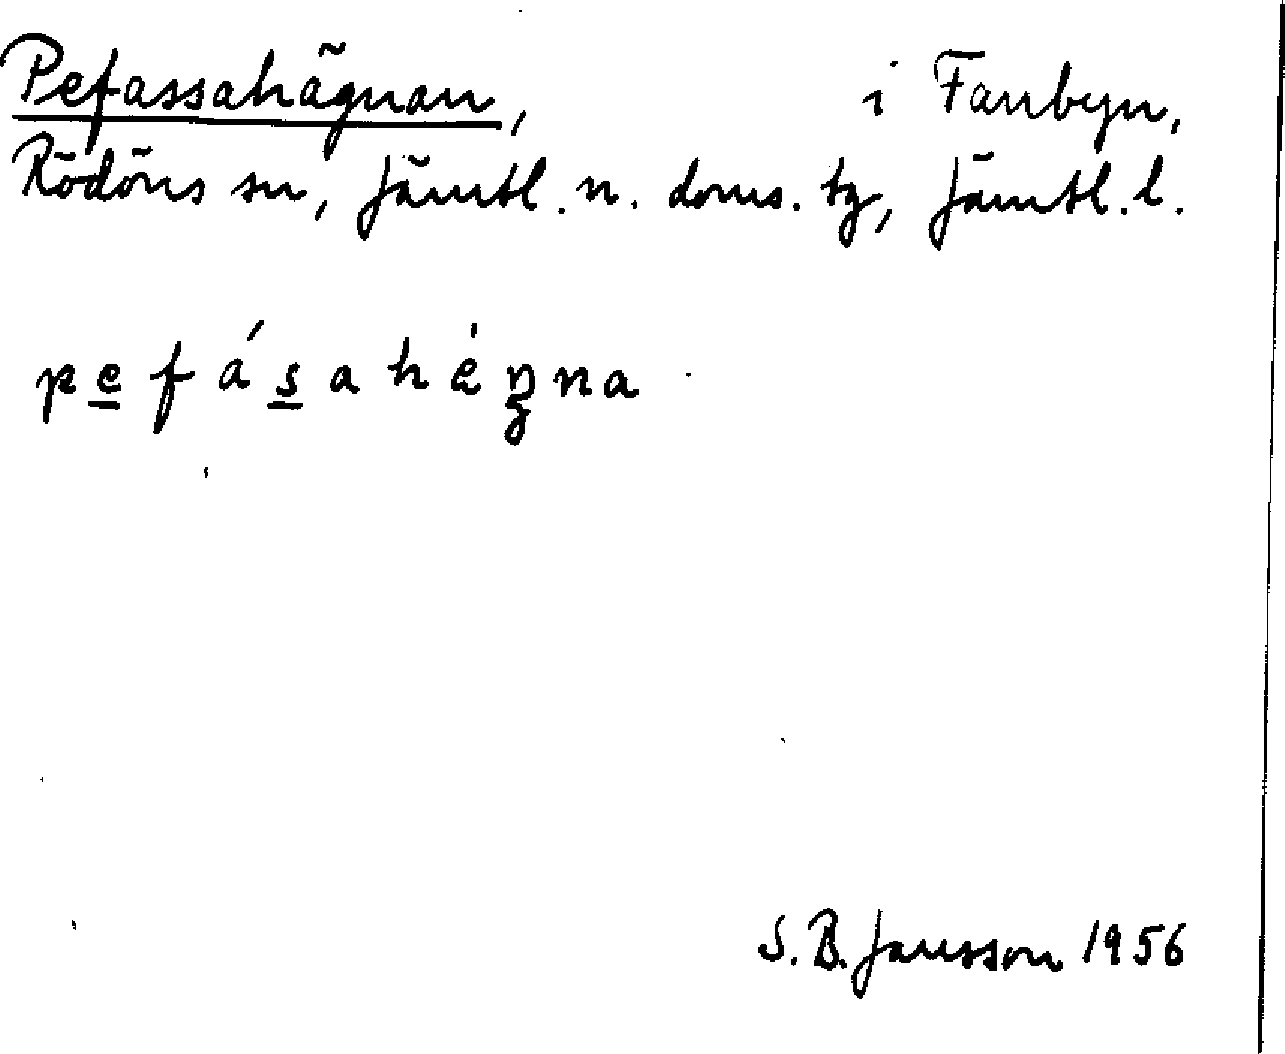 Pefassahägnan, i Fanbyn,
Rödöns sn, Jämtl. n. doms. tg, Jämtl. l.
pefásahèŋna
S. B. Jansson 1956